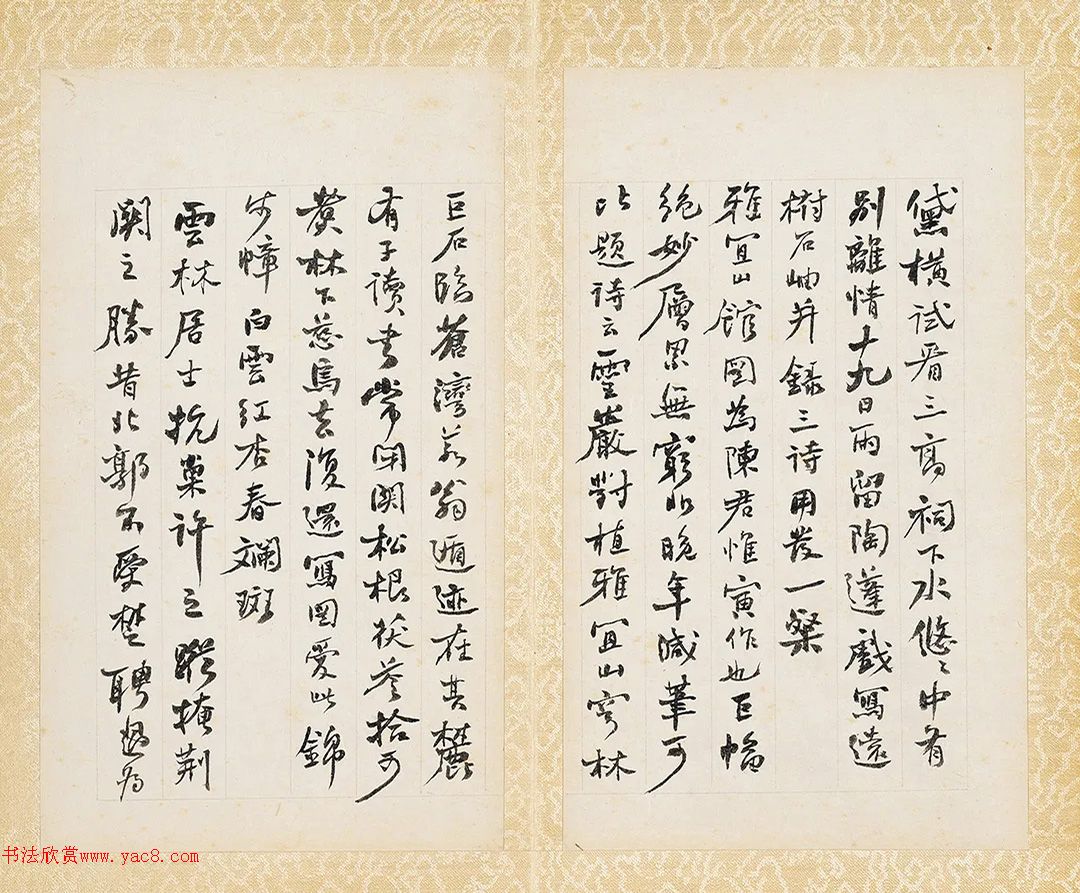 黛橫試看三高祠下水悠〻中有
別離情十九日雨留陶蓬戲寫遠
樹石岫并錄三詩用發一粲
雅宜山館圖為陳君惟寅作也巨幅
絕妙層累無窮非晚年減筆可
比題詩云靈巖對植雅宜山穹林
巨石臨蒼灣若翁遁迹在其麓
有子讀書常閉關松根茯苓拾可
煮林下慈烏去復還寫圖愛此錦
步幛白雲紅杏春斕斑
雲林居士抗巢許之蹤掩荆
關之勝昔北郭不受楚聘過為
书法欣赏www.yac8.com